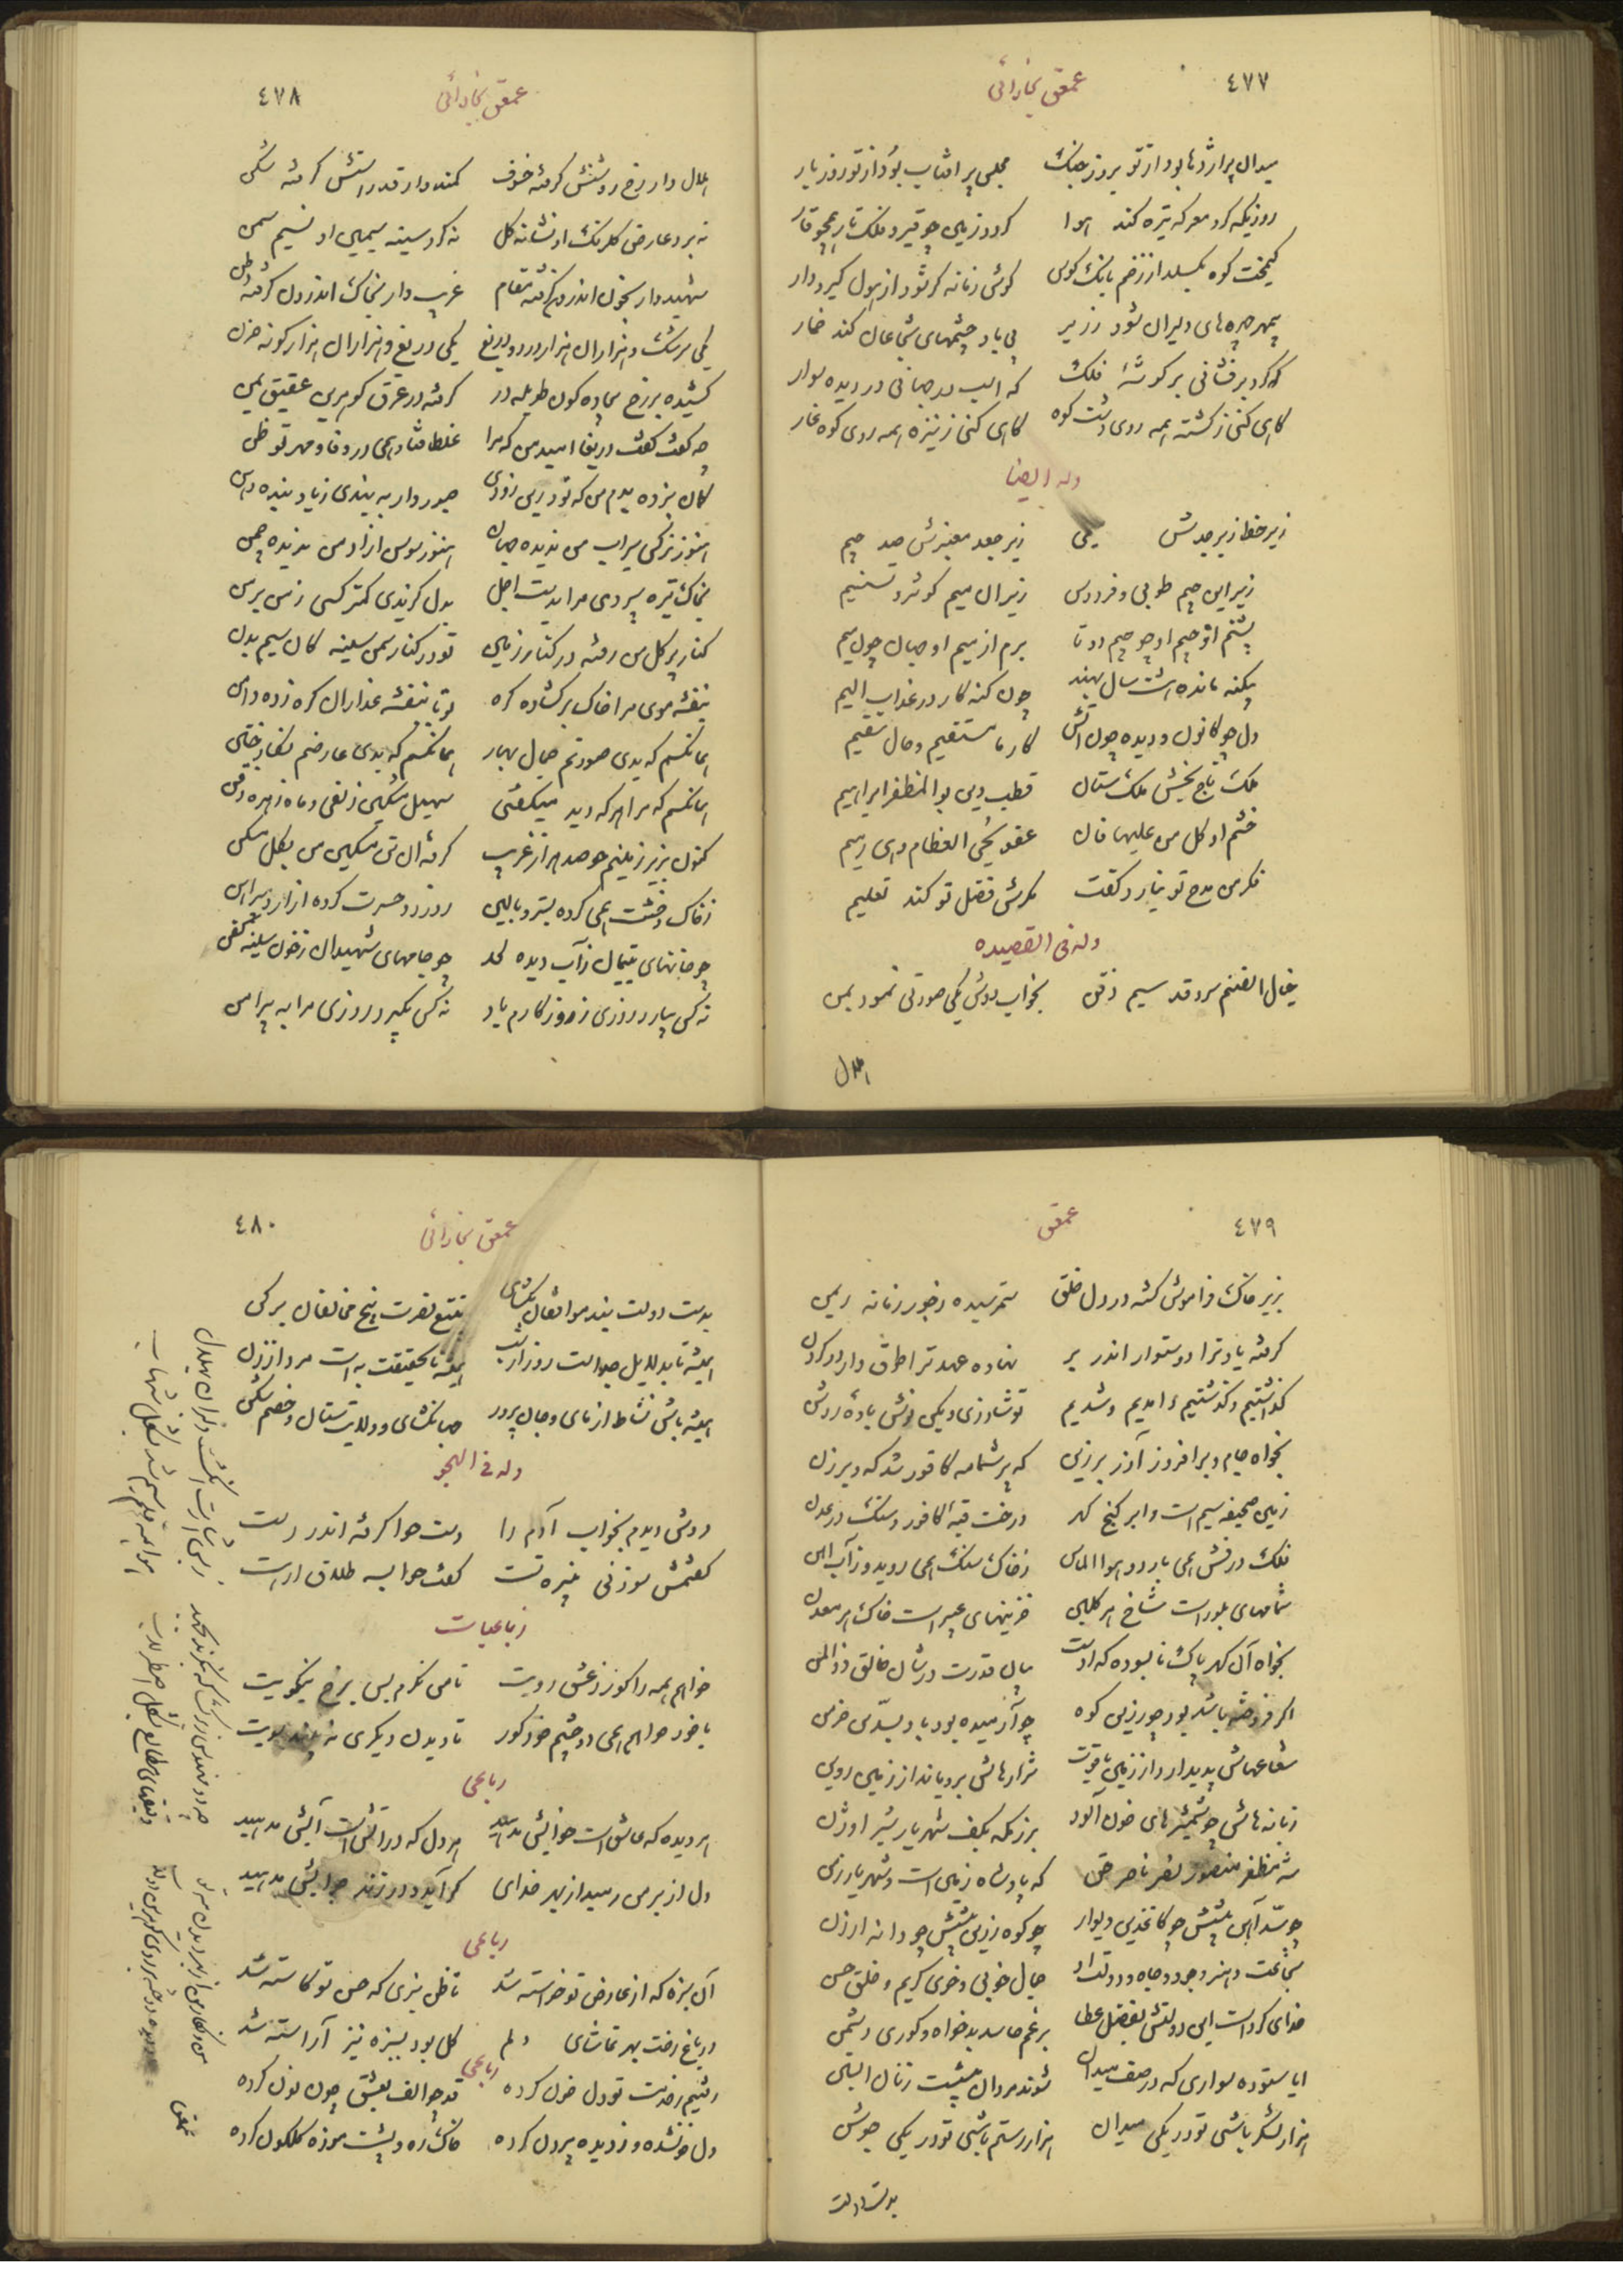 ٤٧٧
عمعق بخارائی
میدان پر اژدها بود از تو بروز جنک مجلس پر افتاب بود از تو روز بار
روزیکه کرد معرکه تیره کند هوا کردد زمین چو قیر و فلک تار همچو قار
کیمخت کوه بکسلد از زخم بانک کوس کوئی زمانه کر شود از هول کیر و دار
بی باد چشمهای شجاعان کند خمار
که کرد برفشانی بر کوشهٔ فلک
کاهی کنی ز کشته همه روی دشت کوه کاهی کنی ز نیزه همه روی کوه غار
وله ایضا
زیر خط از برجدش میمی زیر جعد معنبرش صد جیم
زیر این جیم طوبی و فردوس زیر آن میم کوثر و تسنیم
پشتم از جیم او چو جیم دو تا برم از میم او جهان چون میم
چون کنه کار در عذاب الیم
دل چو کانون و دیده چون آتش کار نا مستقیم و حال سقیم
ملک تاج بخش ملک ستان قطب دین بو المظفر ابراهیم
خشم او کل من علیها فان عفو یحیی العظام و هی رمیم
فکر من مدح تو نیارد کفت کرش فضل تو کند تعلیم
وله فی القصیده
خیال آن صنم سرو قد سیم ذقن بخواب دوش یکی صورتی نمود بمن
هلال
٤٧٨
عمعق بخارائی
هلال وار رخ روشنش کرفته خسوف کمندوار قد راستش کرفته شکن
نه بر دو عارض کلرنک او نشانهٔ کل نه کرد سینهٔ سیمین او نسیم سمن
شهیدوار بخون اندرون کرفته مقام غریب وار بخاک اندرون کرفته وطن
یکی سرشک و هزاران هزار درد و دریغ یکی دریغ و هزاران هزار کونه حزن
کشیده بر رخ بیجاده کون طویلهٔ در کرفته در عرق کوهرین عقیق یمن
چه کفت کفت دریغا امید من که مرا غلط فتاد همی در وفا و مهر تو ظن
کمان نبرده بدم من که تو بدین زودی صبور وار به بندی زیاد بنده دهن
هنوز نرکس سیراب من ندیده جهان هنوز سوسن آزاد من ندیده چمن
بخاک تیره سپردی مرا بدست اجل بدل کزیدی کمتر کسی ز من بر من
کنار پر کل من رفته در کنار زمین تو در کنار سمن سینه کان سیم بدن
بنفشه موی مرا خاک بر کشاده کره تو با بنفشه عذاران کره زده دامن
همانکسم که بدی صورتم جمال بهار همانکسم که بدی عارضم نکار ختن
همانکسم که مرا هر که دید میکفتی سهیل مشکین زلفی و ماه زهره ذقن
کنون بزیر زمینم چو صد هزار غریب کرفته آن تن مشکین من بکل مسکن
ز خاک و خشت همی کرده بستر و بالین ز درد و حسرت کرده ازار و پیراهن
چو خانهای یتیمان ز آب دیده لحد چو جامهای شهیدان ز خون سینه کفن
نه کس بیارد روزی ز روزکارم یاد نه کس بکیرد روزی مرا به پیرامن
٤٧٩
عمعق
بزیر خاک فراموش کشته در دل خلق ستمرسیده و رنجور زمانه ریمن
کرفته یاد ترا دوستوار اندر بر نهاده عهد ترا طوق وار در کردن
کذاشتیم و کذشتیم و آمدیم و شدیم تو شاد زی و بکن نوش بادهٔ روشن
بخواه جام و برافروز آذر برزین که پر شمامه کافور شد که و برزن
زمین صحیفهٔ سیم است و ابر کنج کهر درخت قبهٔ کافور و سنک در عدن
فلک درفش همی بارد و هوا الماس ز خاک سنک همی روید و ز آب آهن
شمامهای بلور است شاخ هر کلبن خزینهای عبیر است خاک هر معدن
بخواه آن کهر پاک نابسوده که اوست بیان قدرت در شان خالق ذوالمن
اکر فروخته باشد بود چو زرین کوه چو آرمیده بود باد بسدین خرمن
شعاعهاش پدیدار دارد از زمین یاقوت شرارهاش برویاند از زمین روین
زبانه هاش چو شمشیرهای خون آلود برزمکه بکف شهریار شیر اوژن
شه مظفر منصور نصر ناصر حق که پادشاه زمین است و شهریار زمن
چو سد آهن پیشش چو کاغذین دیوار چو کوه زرین پیشش چو دانه ارزن
شجاعت و هنر و جود و جاه و دولت او جمال خوبی و خوی کریم و خلق حسن
خدای کرد است این دولتش بفضل عطا برغم حاسد بدخواه و کوری دشمن
ایا ستوده سواری که در صف میدان شوند مردان پیشت زنان آبستن
هزار لشکر باشی تو در یکی میدان هزار رستم باشی تو در یکی جوشن
بدست دولت
٤٨٠
عمعق بخارائی
بدست دولت بند موافقان بکشای بتیغ نصرت بیخ مخالفان بر کن
همیشه تا بدلایل جداست روز از شب همیشه تا بحقیقت به است مرد از زن
همیشه باش نشاط ازمای و جان پرور جهانکشای و ولایت ستان و خصم شکن
وله فی الهجو
دوش دیدم بخواب آدم را دست حوا کرفته اندر دست
کفتمش سوزنی نبیره تست کفت حوا بسه طلاق ار هست
رباعیات
خواهم همه را کور ز عشق رویت تا من نکرم بس برخ نیکویت
یا خود خواهم همی دو چشم خود کور تا دیدن دیکری نه بیند سویت
رباعی
هر دیده که عاشق است خوابش مدهید هر دل که در آتش است آبش مدهید
دل از بر من رمید از بهر خدای کر آید و در زند جوابش مدهید
رباعی
آن سبزه که از عارض تو خواسته شد تا ظن نبری که حسن تو کاسته شد
در باغ رخت بهر تماشای دلم کل بود بسبزه نیز آراسته شد
رباعی
رفتیم ز خدمت تو دل خون کرده قد چو الف بعشق چون نون کرده
دل خونشده و ز دیده بیرون کرده خاک ره و پشت موزه کلکون کرده
عمعق